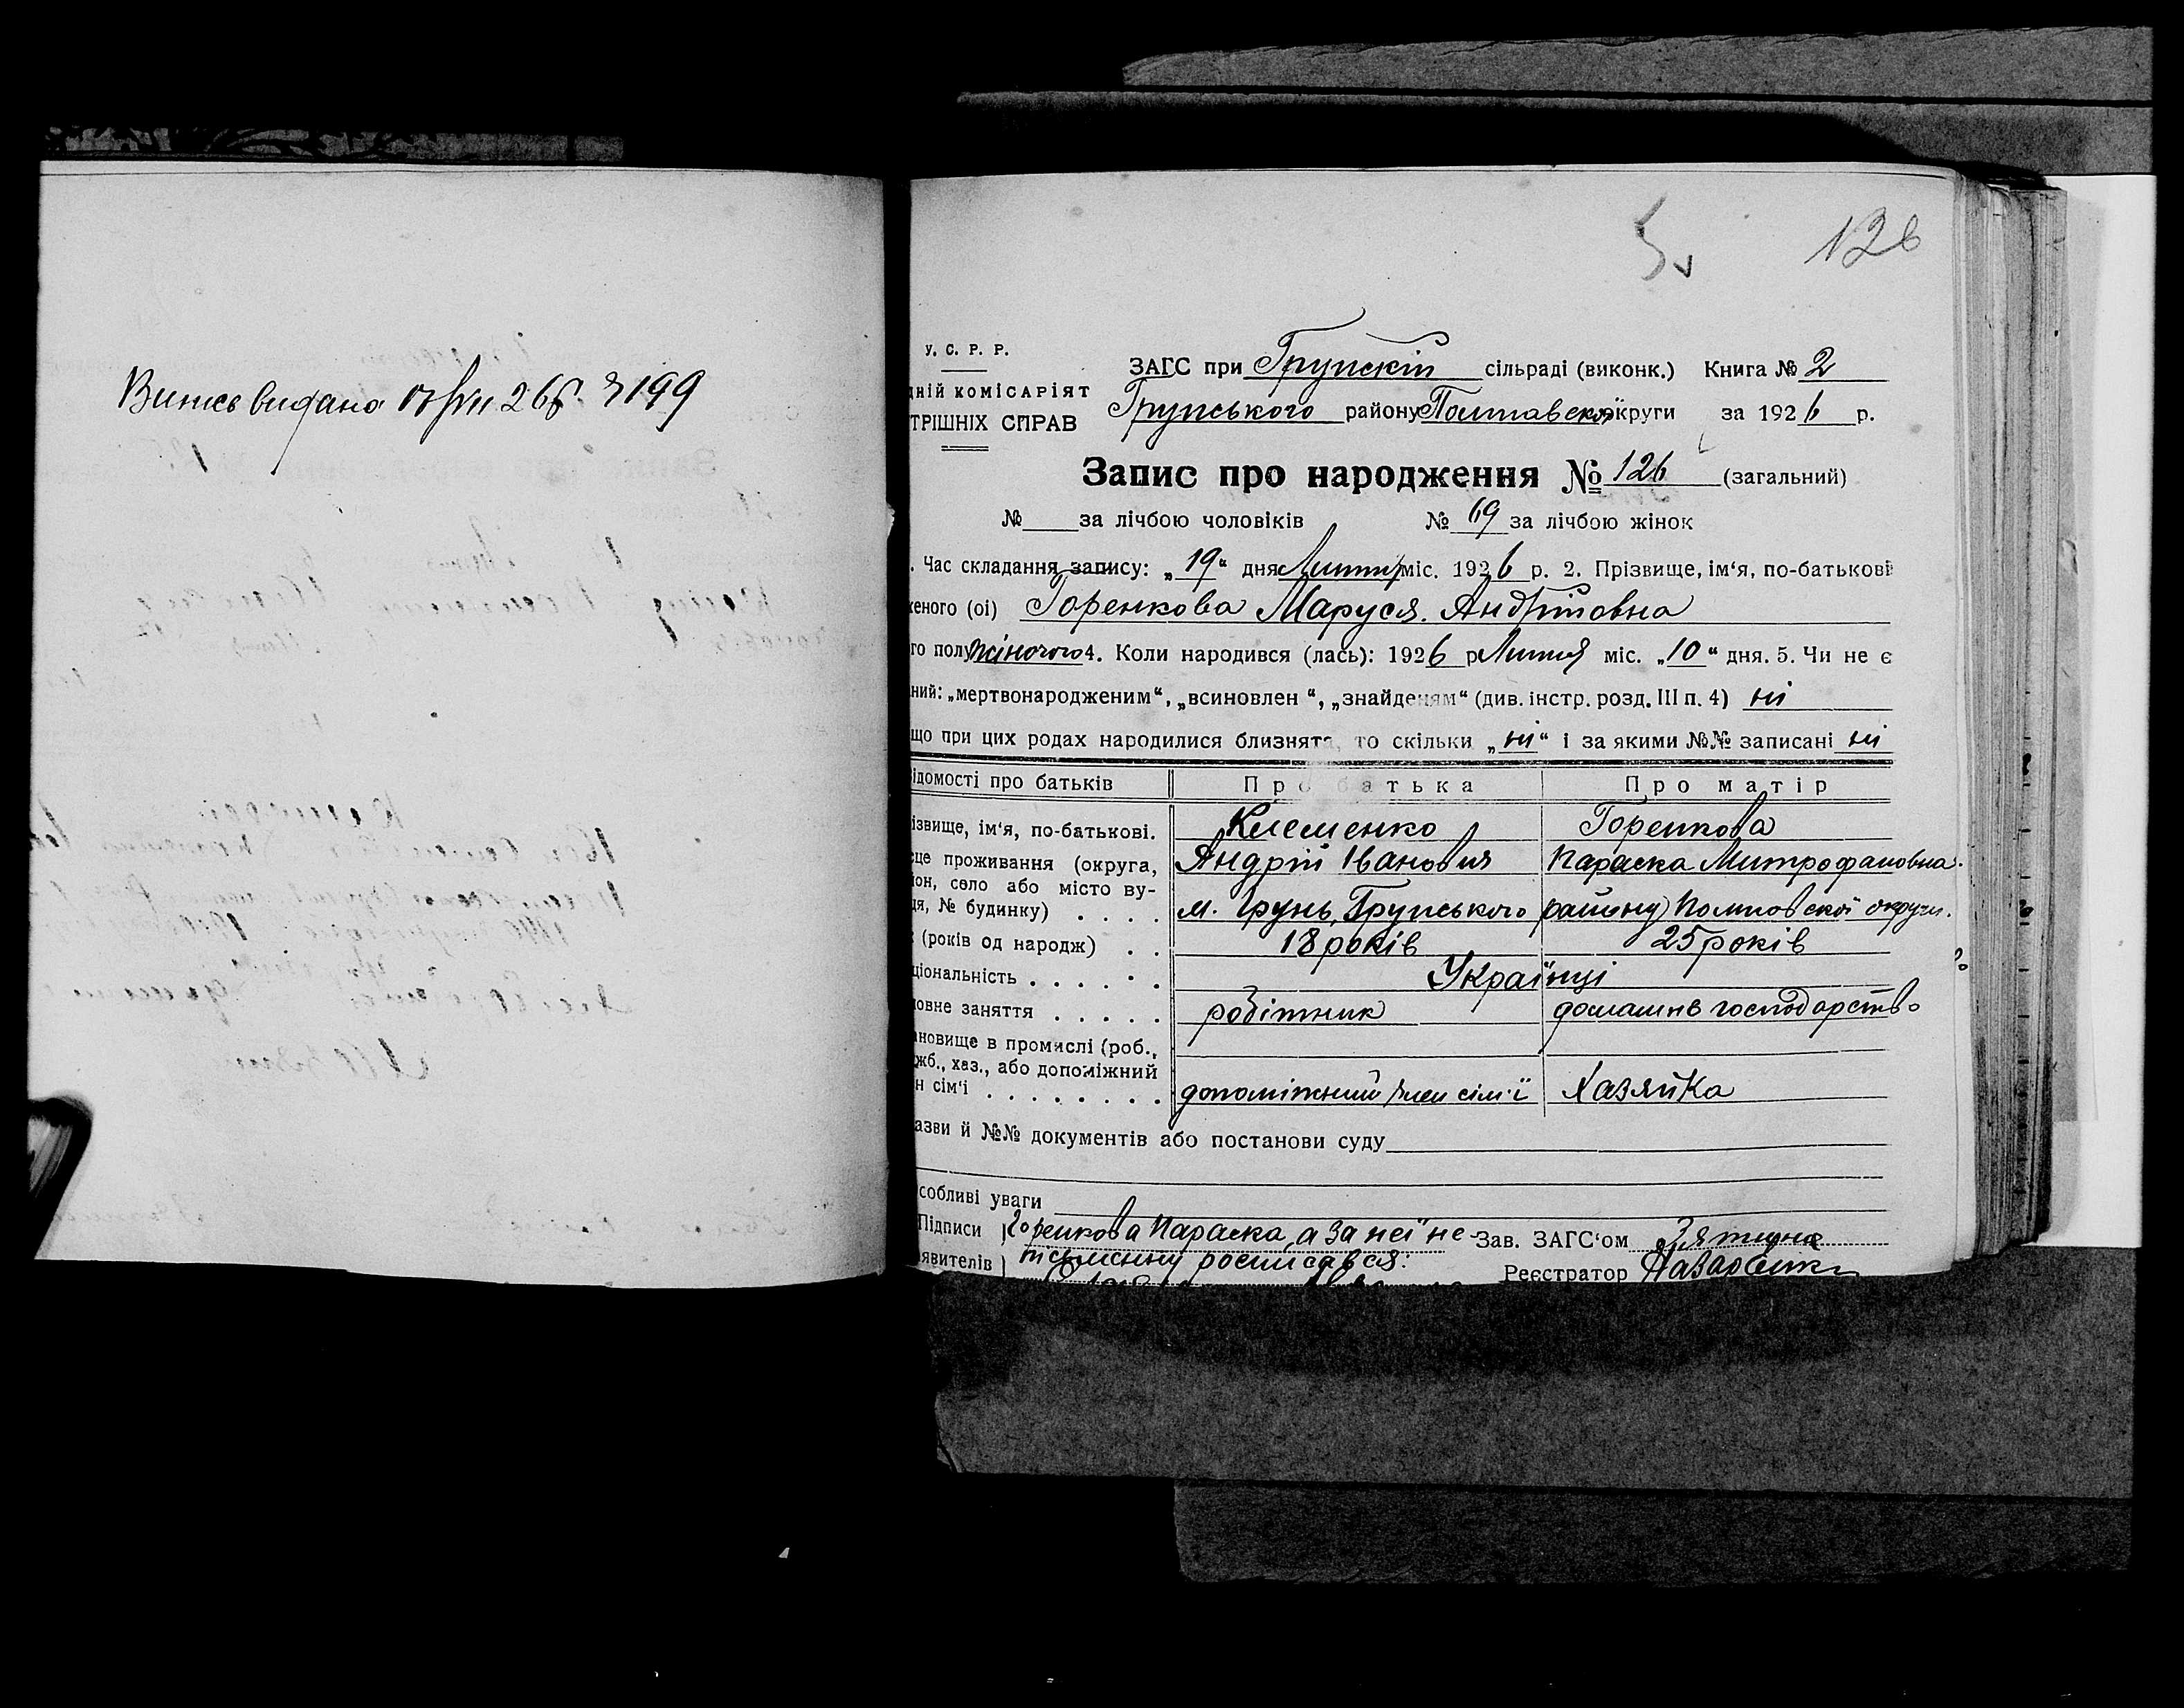 Випись видано
№ 199
126
У. С. Р. Р.
ЗАГС при Грунскій сільраді (виконк.) Книга № 2
дній КОМІСАРІЯТ
Грунського району Полтавской округи за 1926 р.
ТРІШНІХ СПРАВ
Запис про народження № 126 (загальний)
№ за лічбою чоловіків № 69 за лічбою жінок
. Час складання запису: „19“ дня Липня міс. 1926 р. 2. Прізвище, ім‘я, по-батькові
женого (оі) Горенкова Маруся. Андріївна
го полу жіночого 4. Коли народився (лась): 1926 р Липня міс. „10“ дня. 5. Чи не є
ний: „мертвонародженим“, „всиновлен “, „знайденям“ (див. інстр. розд. III п. 4) ні
що при цих родах народилися близнята, то скільки „ні“ і за якими №№ записані ні
ідомості про батьків Про батька Про матір
ізвище, ім‘я, по-батькові. Клеменко Горенкова
це проживання (округа, Андрій Іванович Параска Митрофановна.
он, село або місто ву-
ця, № будинку) . . . . м. Грунь, Грунського району Полтовскої округи.
(років од народж) . . 18 років 25 років
ціональність . . . . . . Українці
овне заняття . . . . . робітник домашнє господарство
ановище в промислі (роб.,
жб., хаз., або допоміжний
н сім‘ї . . . . . . . . . допоміжний член сім‘ї Хазяйка
азви й №№ документів або постанови суду
собливі уваги
Підписи Горенкова Параска, а за неї не- Зав. ЗАГС‘ом
явителів письменну росписався:
Реєстратор